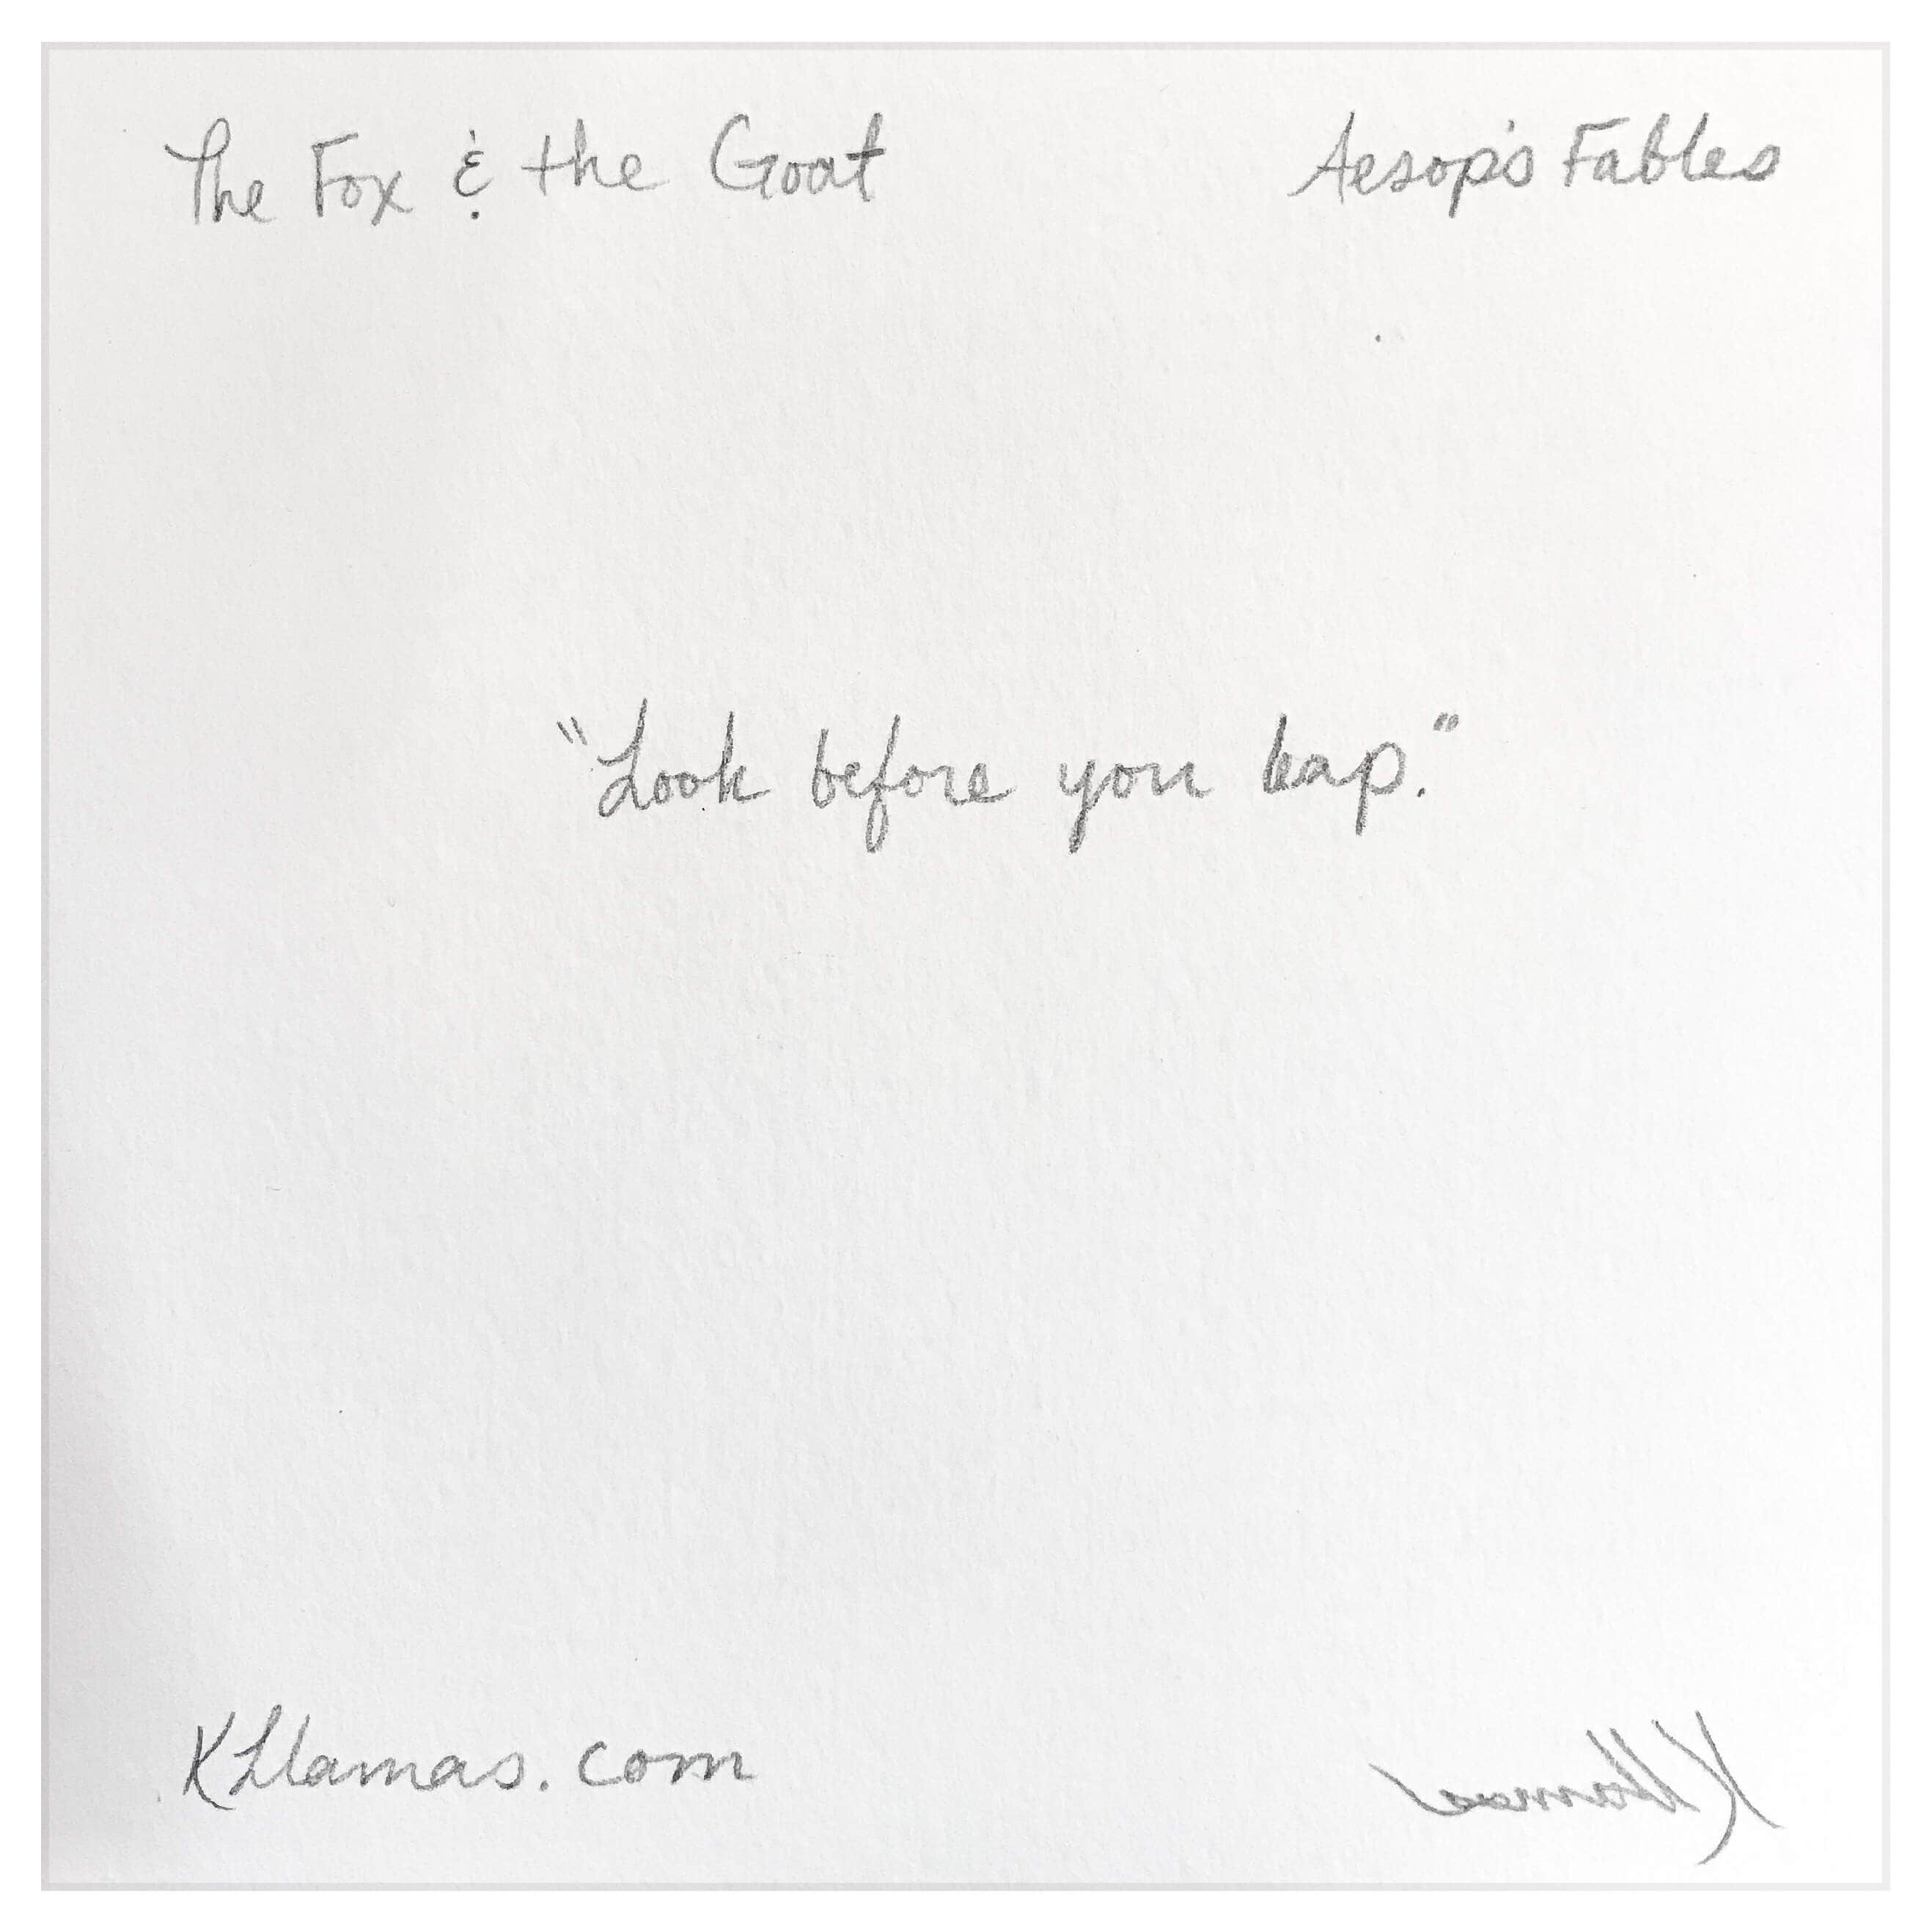 The Fox & the Goat
Aesop's Fables
"Look before you leap."
KLlamas.com
KLlamas